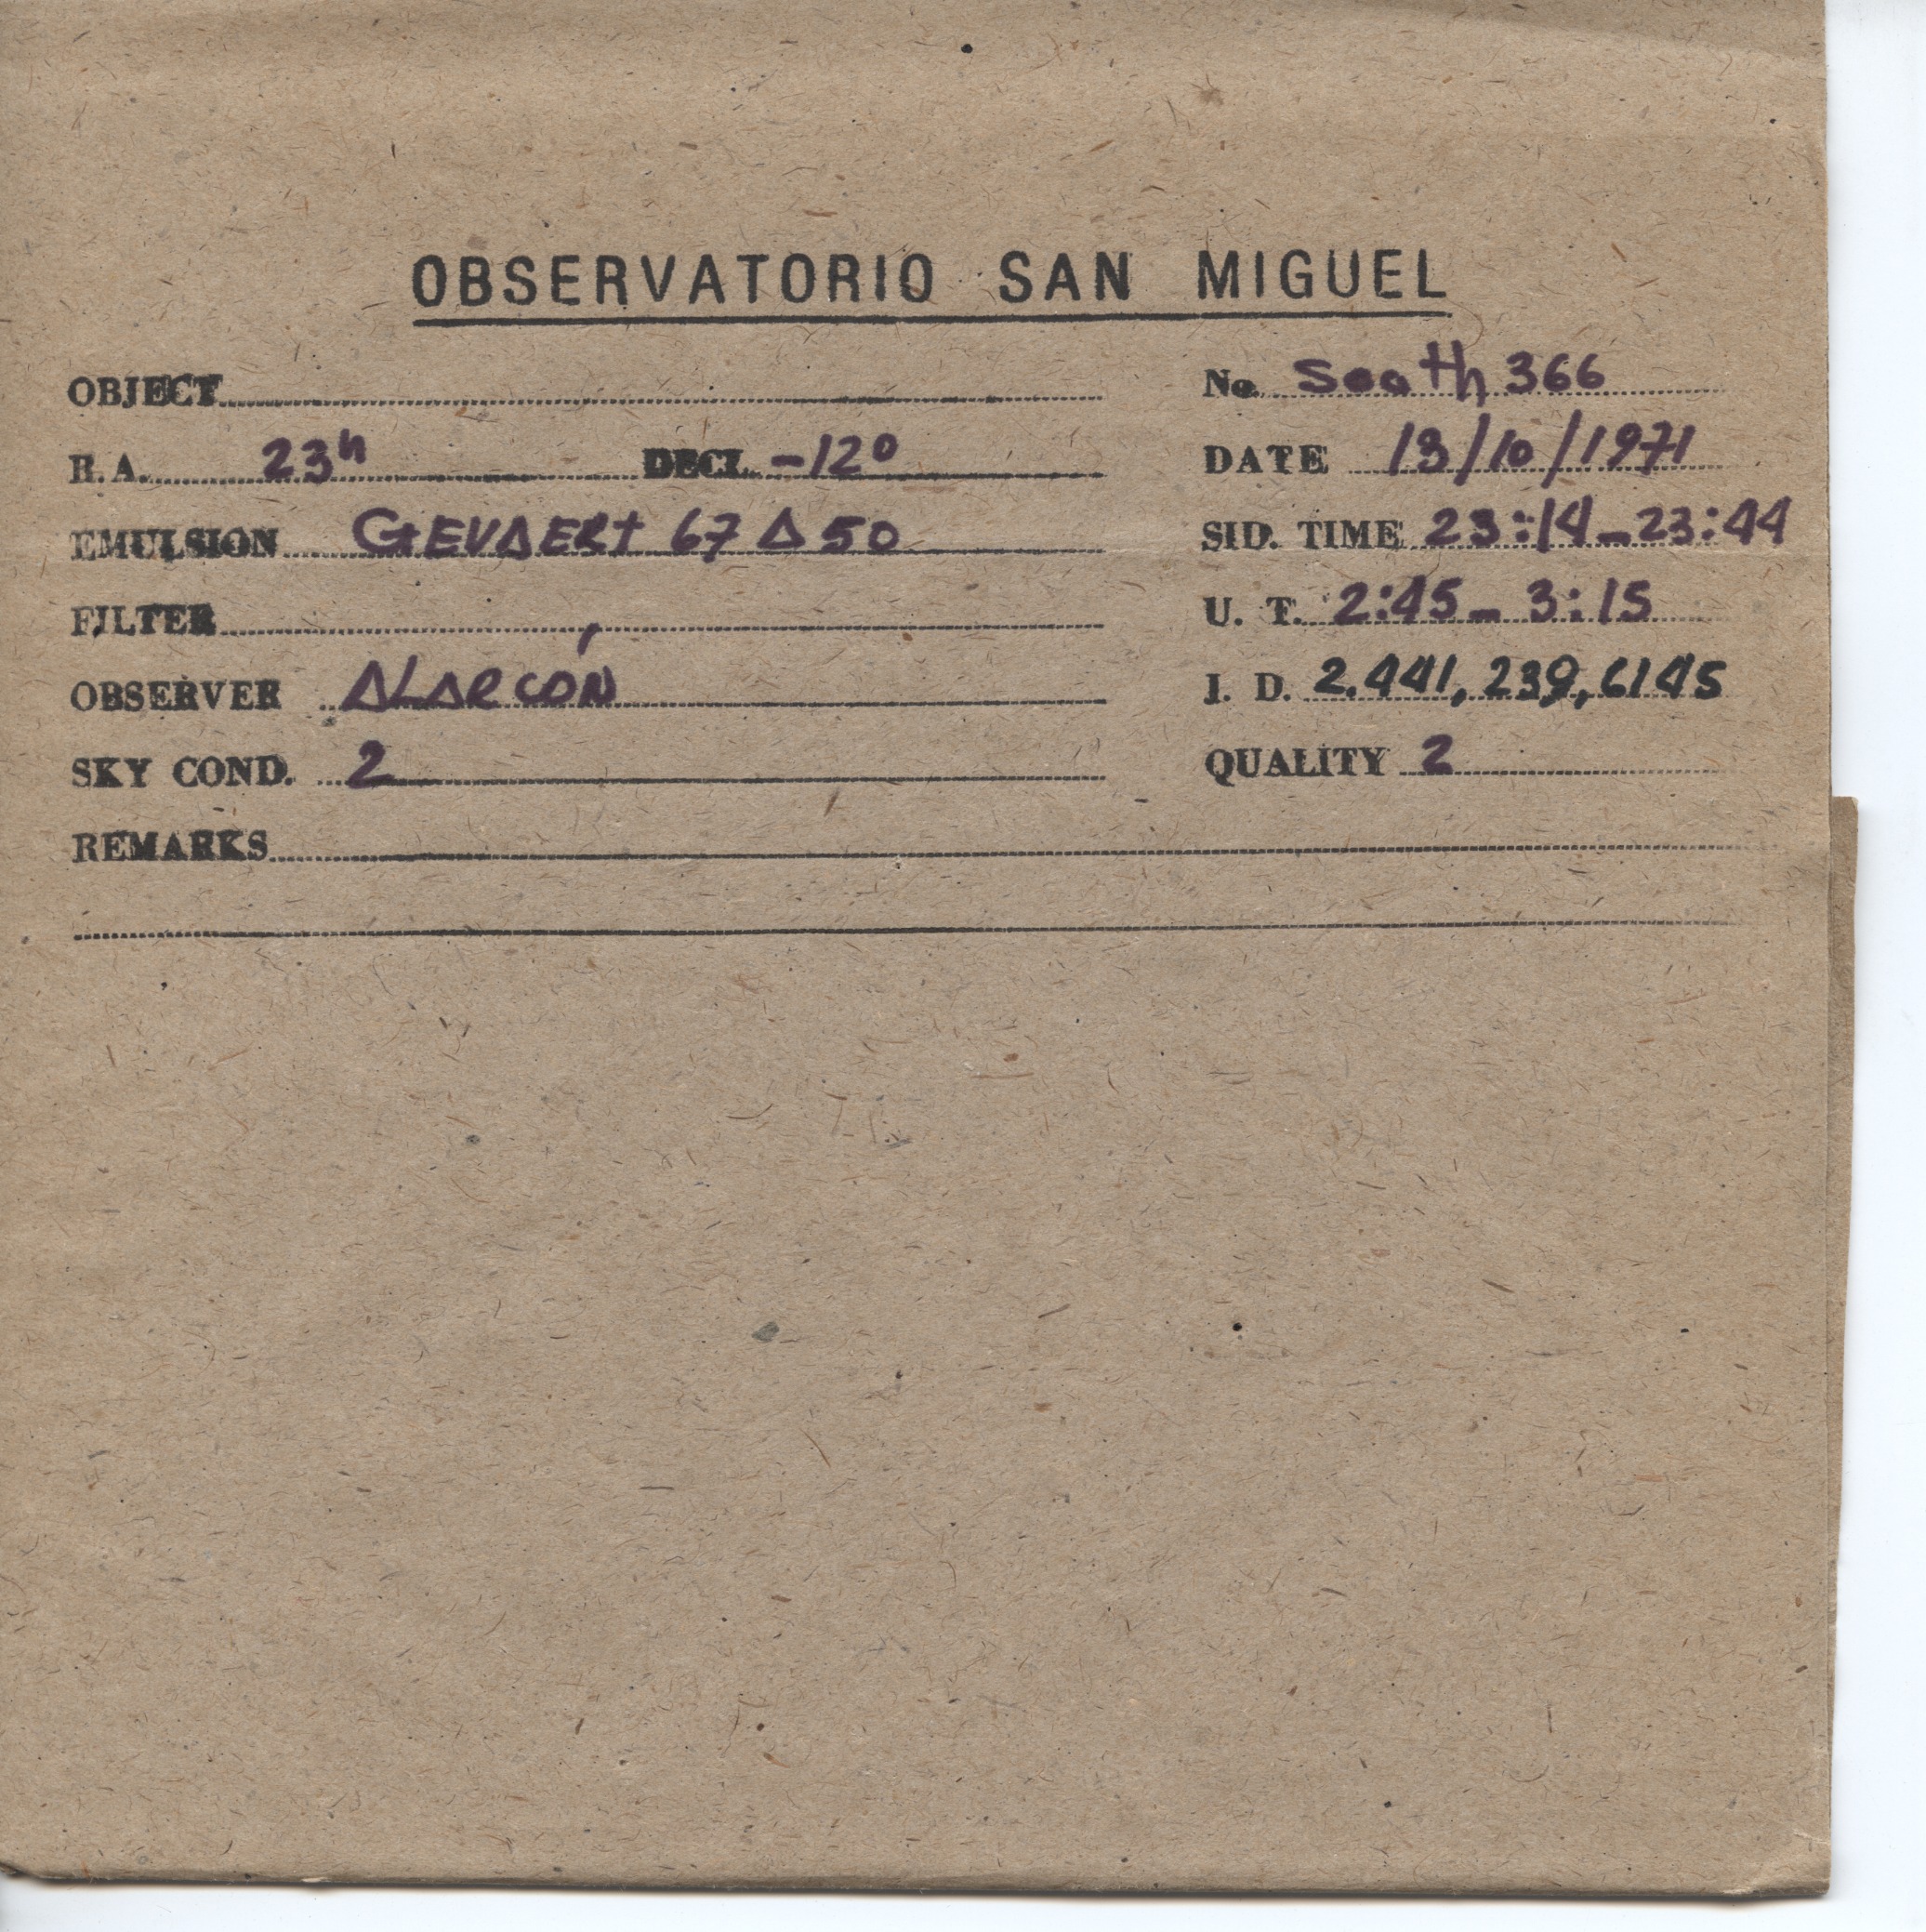 OBSERVATORIO SAN MIGUEL
OBJECT
No. South 366
R. A. 23h DECL. -12º
DATE 13/10/1971
EMULSION GEVAERT 67 A 50
SID. TIME 23:14-23:44
FILTER
U. T. 2:45-3:15
OBSERVER ALARCÓN
J. D. 2.441,239,6145
SKY COND. 2
QUALITY 2
REMARKS